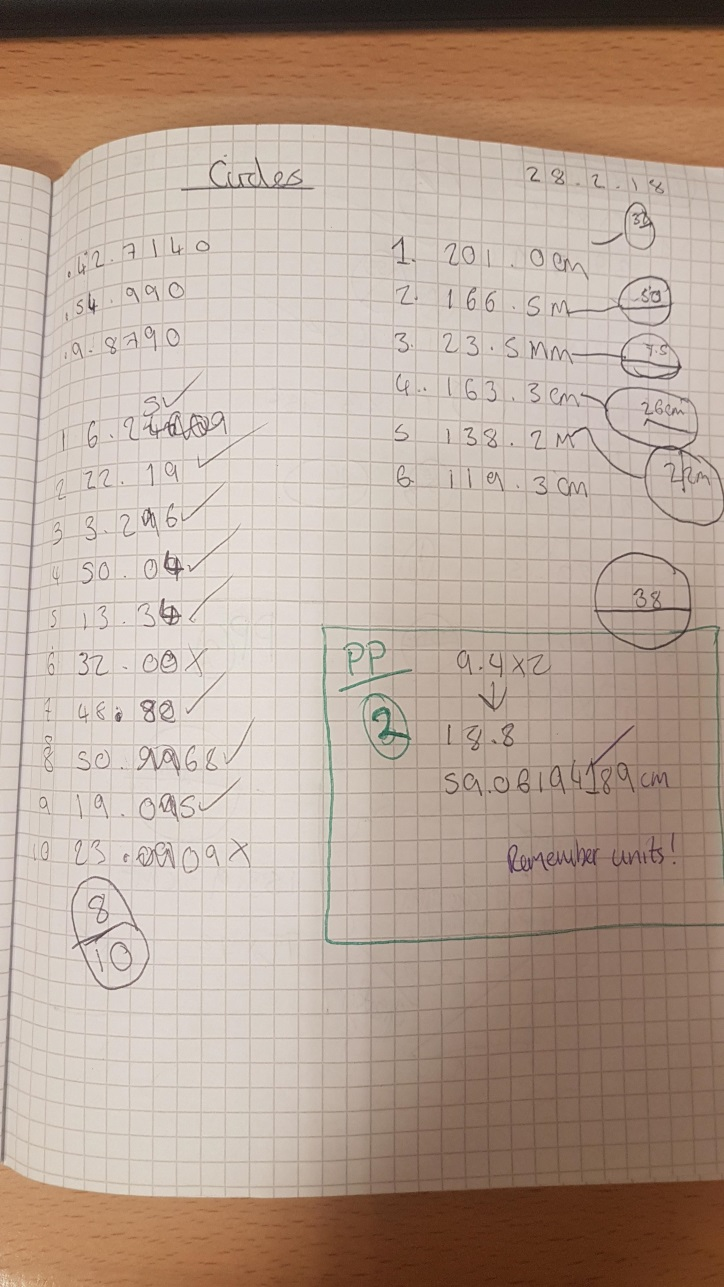 Circles
28.2.18
.42.7140
.54.990
.9.8790
5✓
1 6.2
2 22.19 ✓
3 3.296 ✓
4 50.04 ✓
5 13.34 ✓
6 32.00 X
7 48.80 ✓
8 50.9968 ✓
9 19.095 ✓
10 23.0909 X
8
10
1. 201.0cm
2. 166.5m
50
3. 23.5mm
7.5
4.. 163.3cm
26cm
5 138.2m
22m
6 119.3cm
38
PP
2
9.4x2
↓
18.8
59.06194189cm
Remember units!